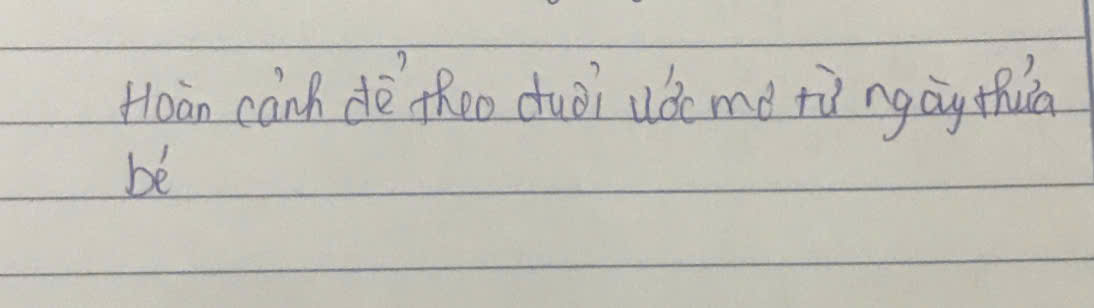 Hoàn cảnh để theo đuổi ước mơ từ ngày thủa
bé